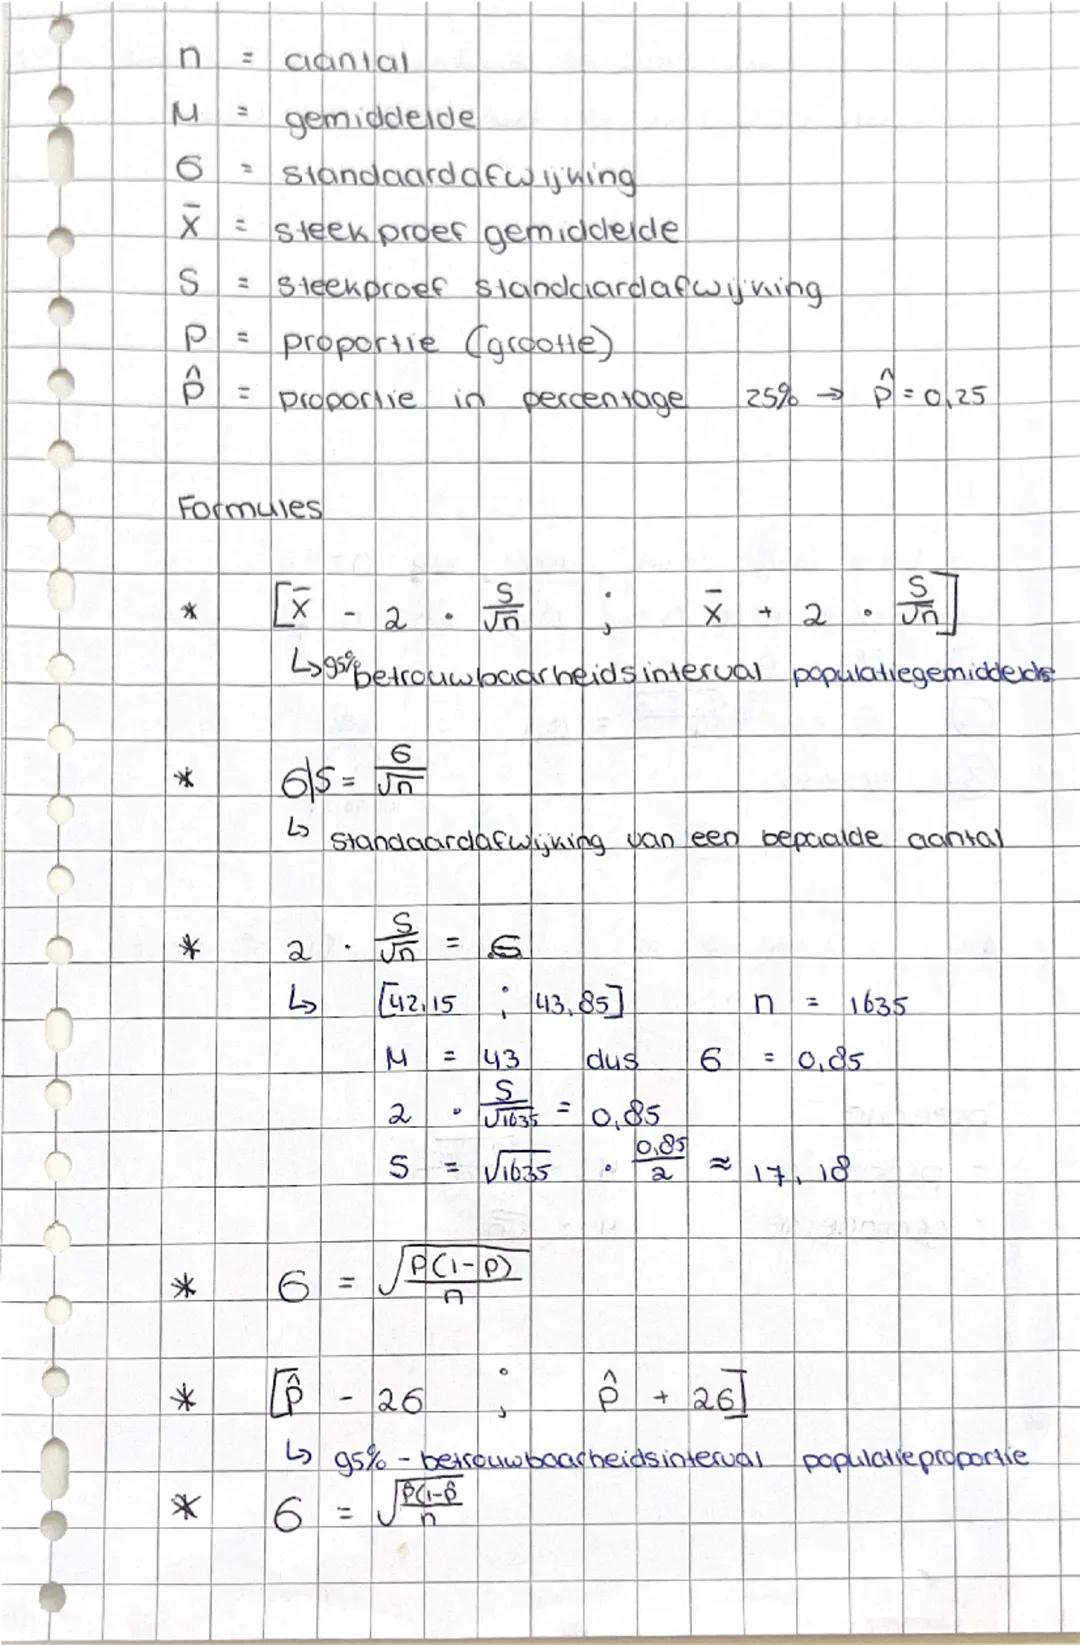 n = aantal
μ = gemiddelde
σ = standaardafwijking
x̄ = steekproef gemiddelde
S = steekproef standaardafwijking
p = proportie (grootte)
p̂ = proportie in percentage 25% → p̂ = 0,25
Formules
* [x̄ - 2 · S/√n ; x̄ + 2 · S/√n]
↳ 95% betrouwbaarheidsinterval populatiegemiddelde
* σ|S = σ/√n
↳ standaardafwijking van een bepaalde aantal
* 2 · S/√n = σ
↳ [42,15 ; 43,85] n = 1635
μ = 43 dus σ = 0,85
2 · S/√1635 = 0,85
S = √1635 · 0,85/2 ≈ 17,18
* σ = √(p(1-p)/n)
* [p̂ - 2σ ; p̂ + 2σ]
↳ 95% - betrouwbaarheidsinterval populatieproportie
* σ = √(p̂(1-p̂/n)